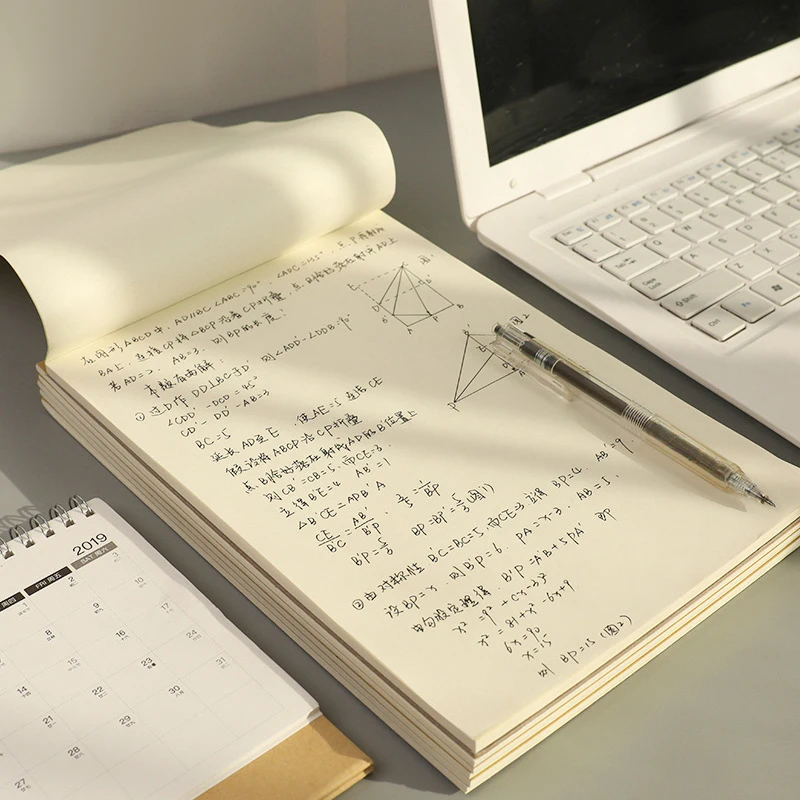 在图形ABCD中,AD//BC ∠ABC=90° ∠ADC=135°,点P
BA上,连接CP将△BCP沿着CP折叠,点B恰好落在射线AD上
若AD=2,AB=3,则BP的长度
本题有两解:
①过D作DD'⊥BC于D' 则∠ADD'=∠DD'B=90°
∠CDD'=DCD'=45°
CD'=DD'=AB=3
BC=5
延长AD至E,使AE=5连活CE
假设将△BCP沿CP折叠
点B恰好落在射线AD的B'位置上
则CB'=CB=5,而CE=3,
立得B'E=4 AB'=1
△B'CE∽△PB'A
CE/B'C=AB'/B'P, 3/5=1/B'P
B'P=5/3 BP=B'P=5/3(图1)
②由对称性B'C=BC=5,而CE=3立得B'E=4 AB'=9
设BP=x 则B'P=x PA=x-3 AB=
由勾股定理得,B'P²=AB'²+PA² 即
x²=9²+(x-3)²
x²=81+x²-6x+9
6x=90
x=15
则BP=15(图2)
E
D
B'
A
P
B
C
图2
B'
P
2019
FRI 周五
SAT 周六
1
2
3
8
9
10
14
15
16
17
21
22
23
24
27
28
29
30
31
Shift
Ctrl
Tab
Q
W
E
A
S
Z
X